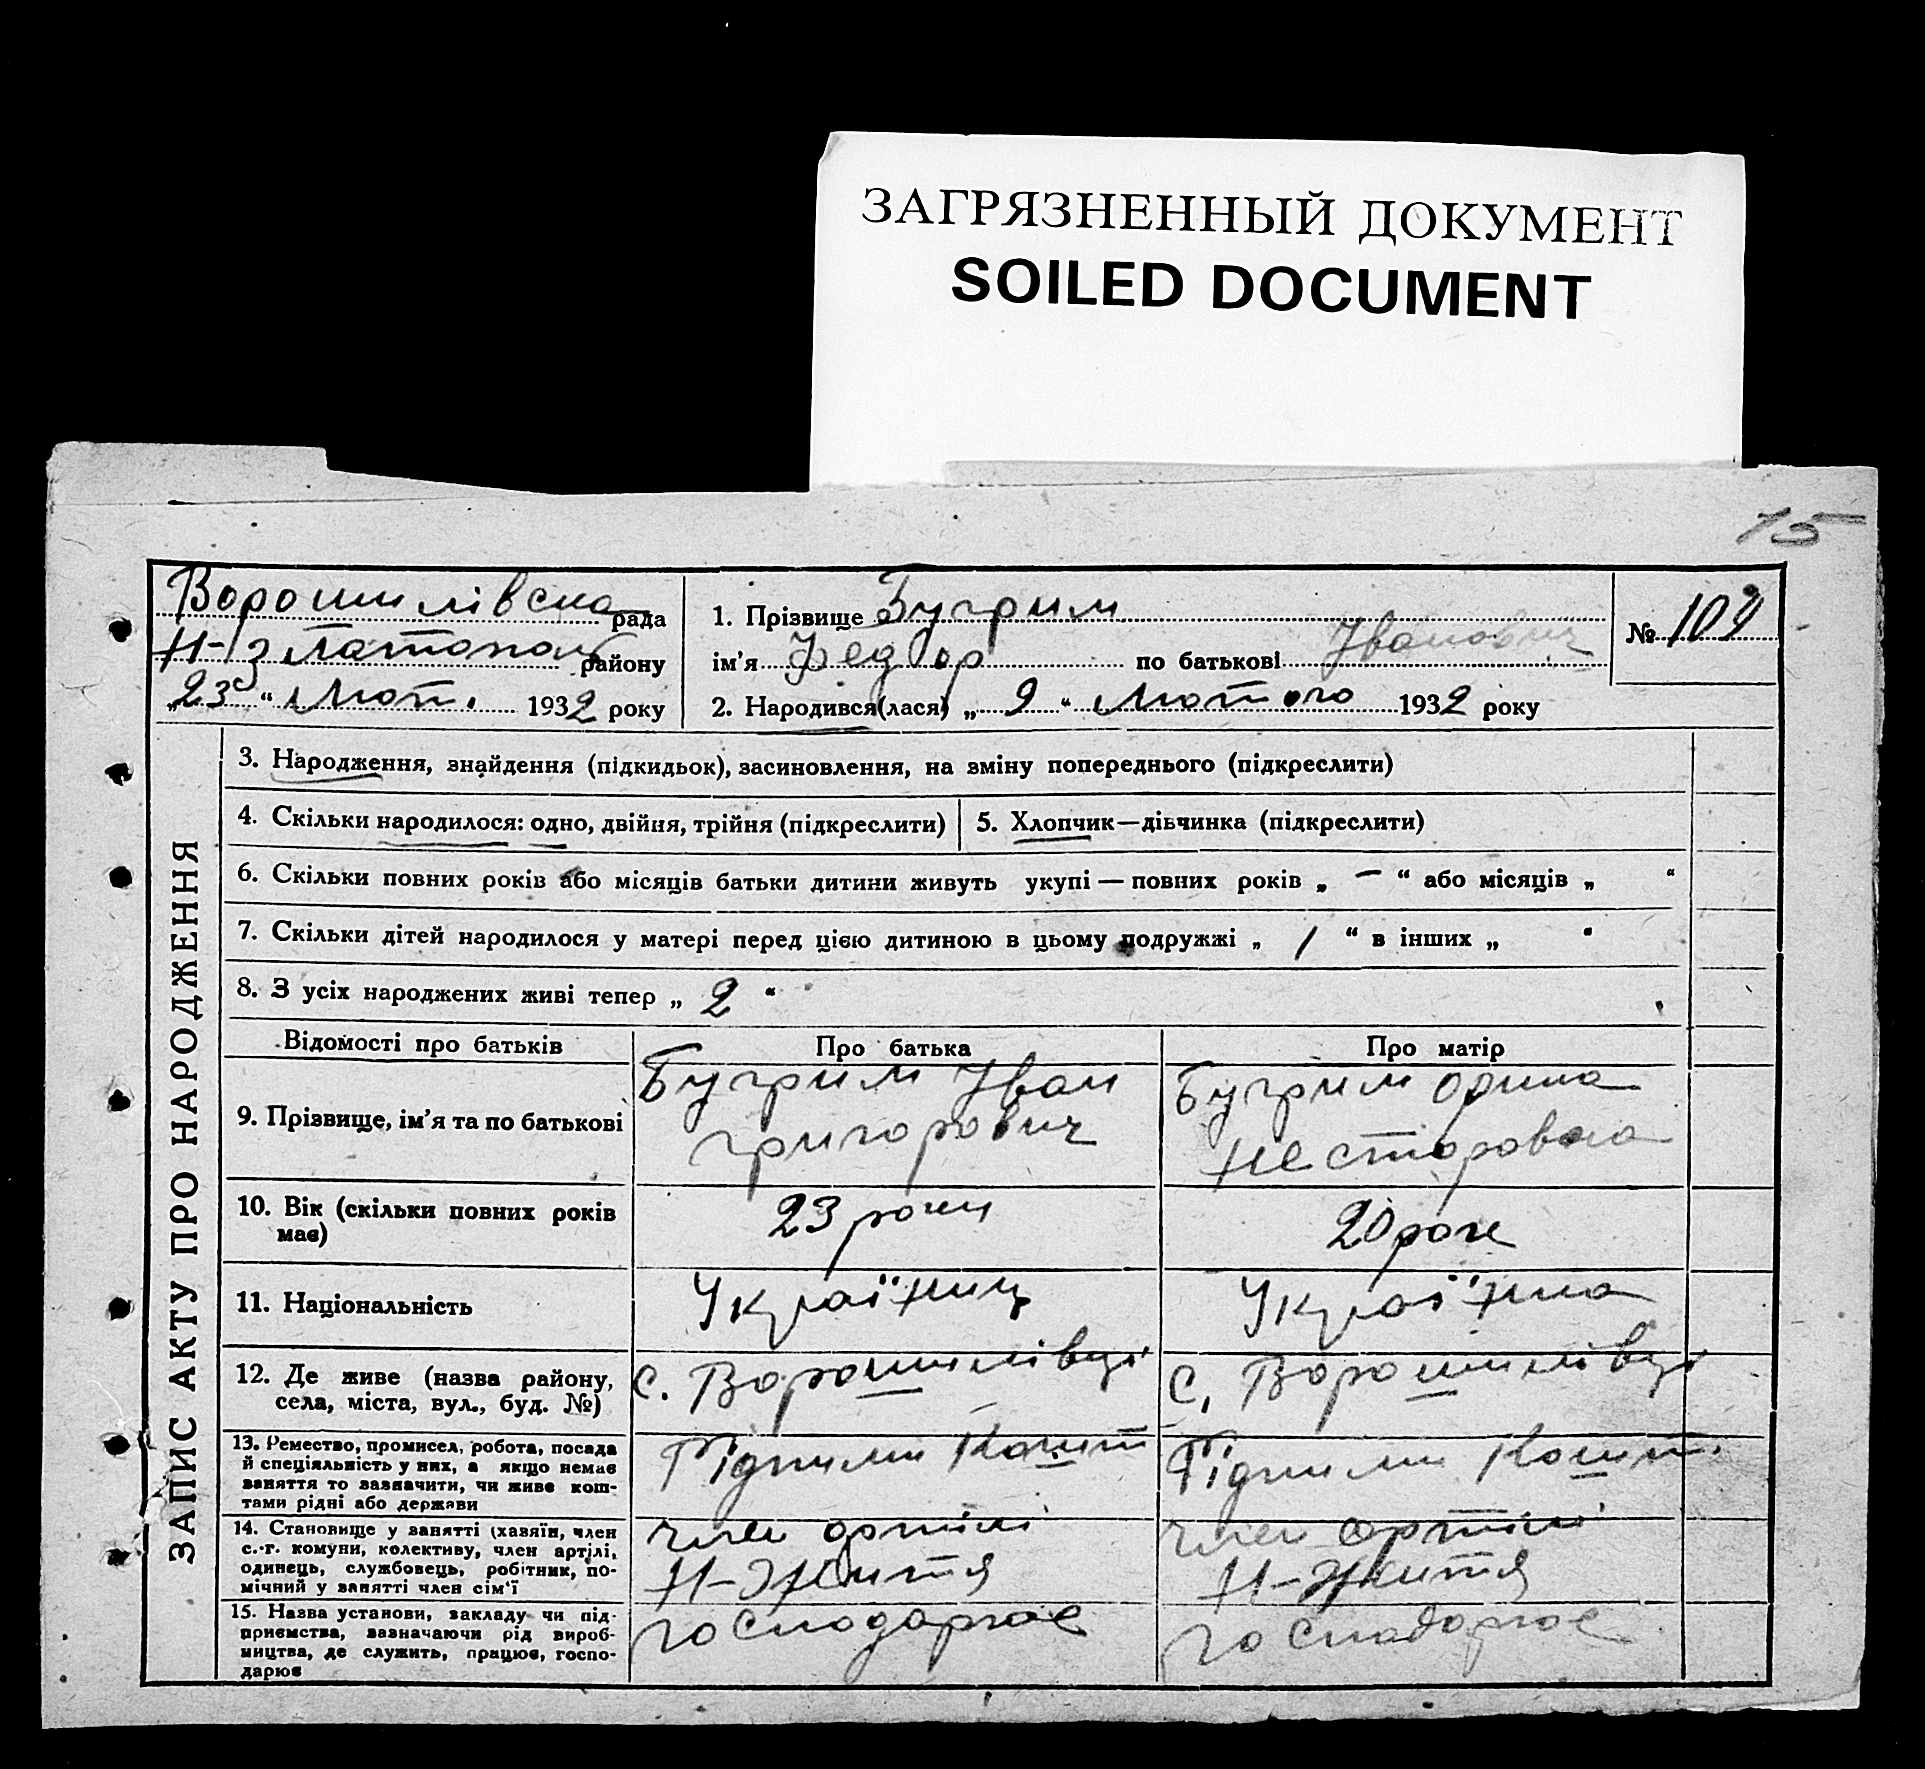 ЗАГРЯЗНЕННЫЙ ДОКУМЕНТ
SOILED DOCUMENT
15
ЗАПИС АКТУ ПРО НАРОДЖЕННЯ
Ворошилівска рада
району
„23“ Лют. 1932 року
1. Прізвище Бугрим
ім'я Федор по батькові Іванович
2. Народився(лася) „9“ Лютого 1932 року
№ 109
3. Народження, знайдення (підкидьок), засиновлення, на зміну попереднього (підкреслити)
4. Скільки народилося: одно, двійня, трійня (підкреслити)
5. Хлопчик—дівчинка (підкреслити)
6. Скільки повних років або місяців батьки дитини живуть укупі — повних років „ — “ або місяців „ “
7. Скільки дітей народилося у матері перед цією дитиною в цьому подружжі „ 1 “ в інших „ “
8. З усіх народжених живі тепер „ 2 “
Відомості про батьків
Про батька
Про матір
9. Прізвище, ім'я та по батькові
Бугрим Іван
Григорович
Бугрим Орина
Несторовна
10. Вік (скільки повних років
має)
23 роки
20 роке
11. Національність
Україниц
Україинка
12. Де живе (назва району,
села, міста, вул., буд. №)
с. Ворошилівці
с. Ворошилівці
13. Ремество, промисел, робота, посада
й спеціяльність у них, а якщо немає
заняття то зазначити, чи живе кош-
тами рідні або держави
Рідними Кошт
Рідними Кошт.
14. Становище у занятті (хазяїн, член
с.-г. комуни, колективу, член артілі,
одинець, службовець, робітник, по-
мічний у занятті член сім'ї
член артілі
Н-Життя
член артілі
Н-Життя
15. Назва установи, закладу чи під-
приємства, зазначаючи рід вироб-
ництва, де служить, працює, госпо-
дарює
господаркое
господаркое